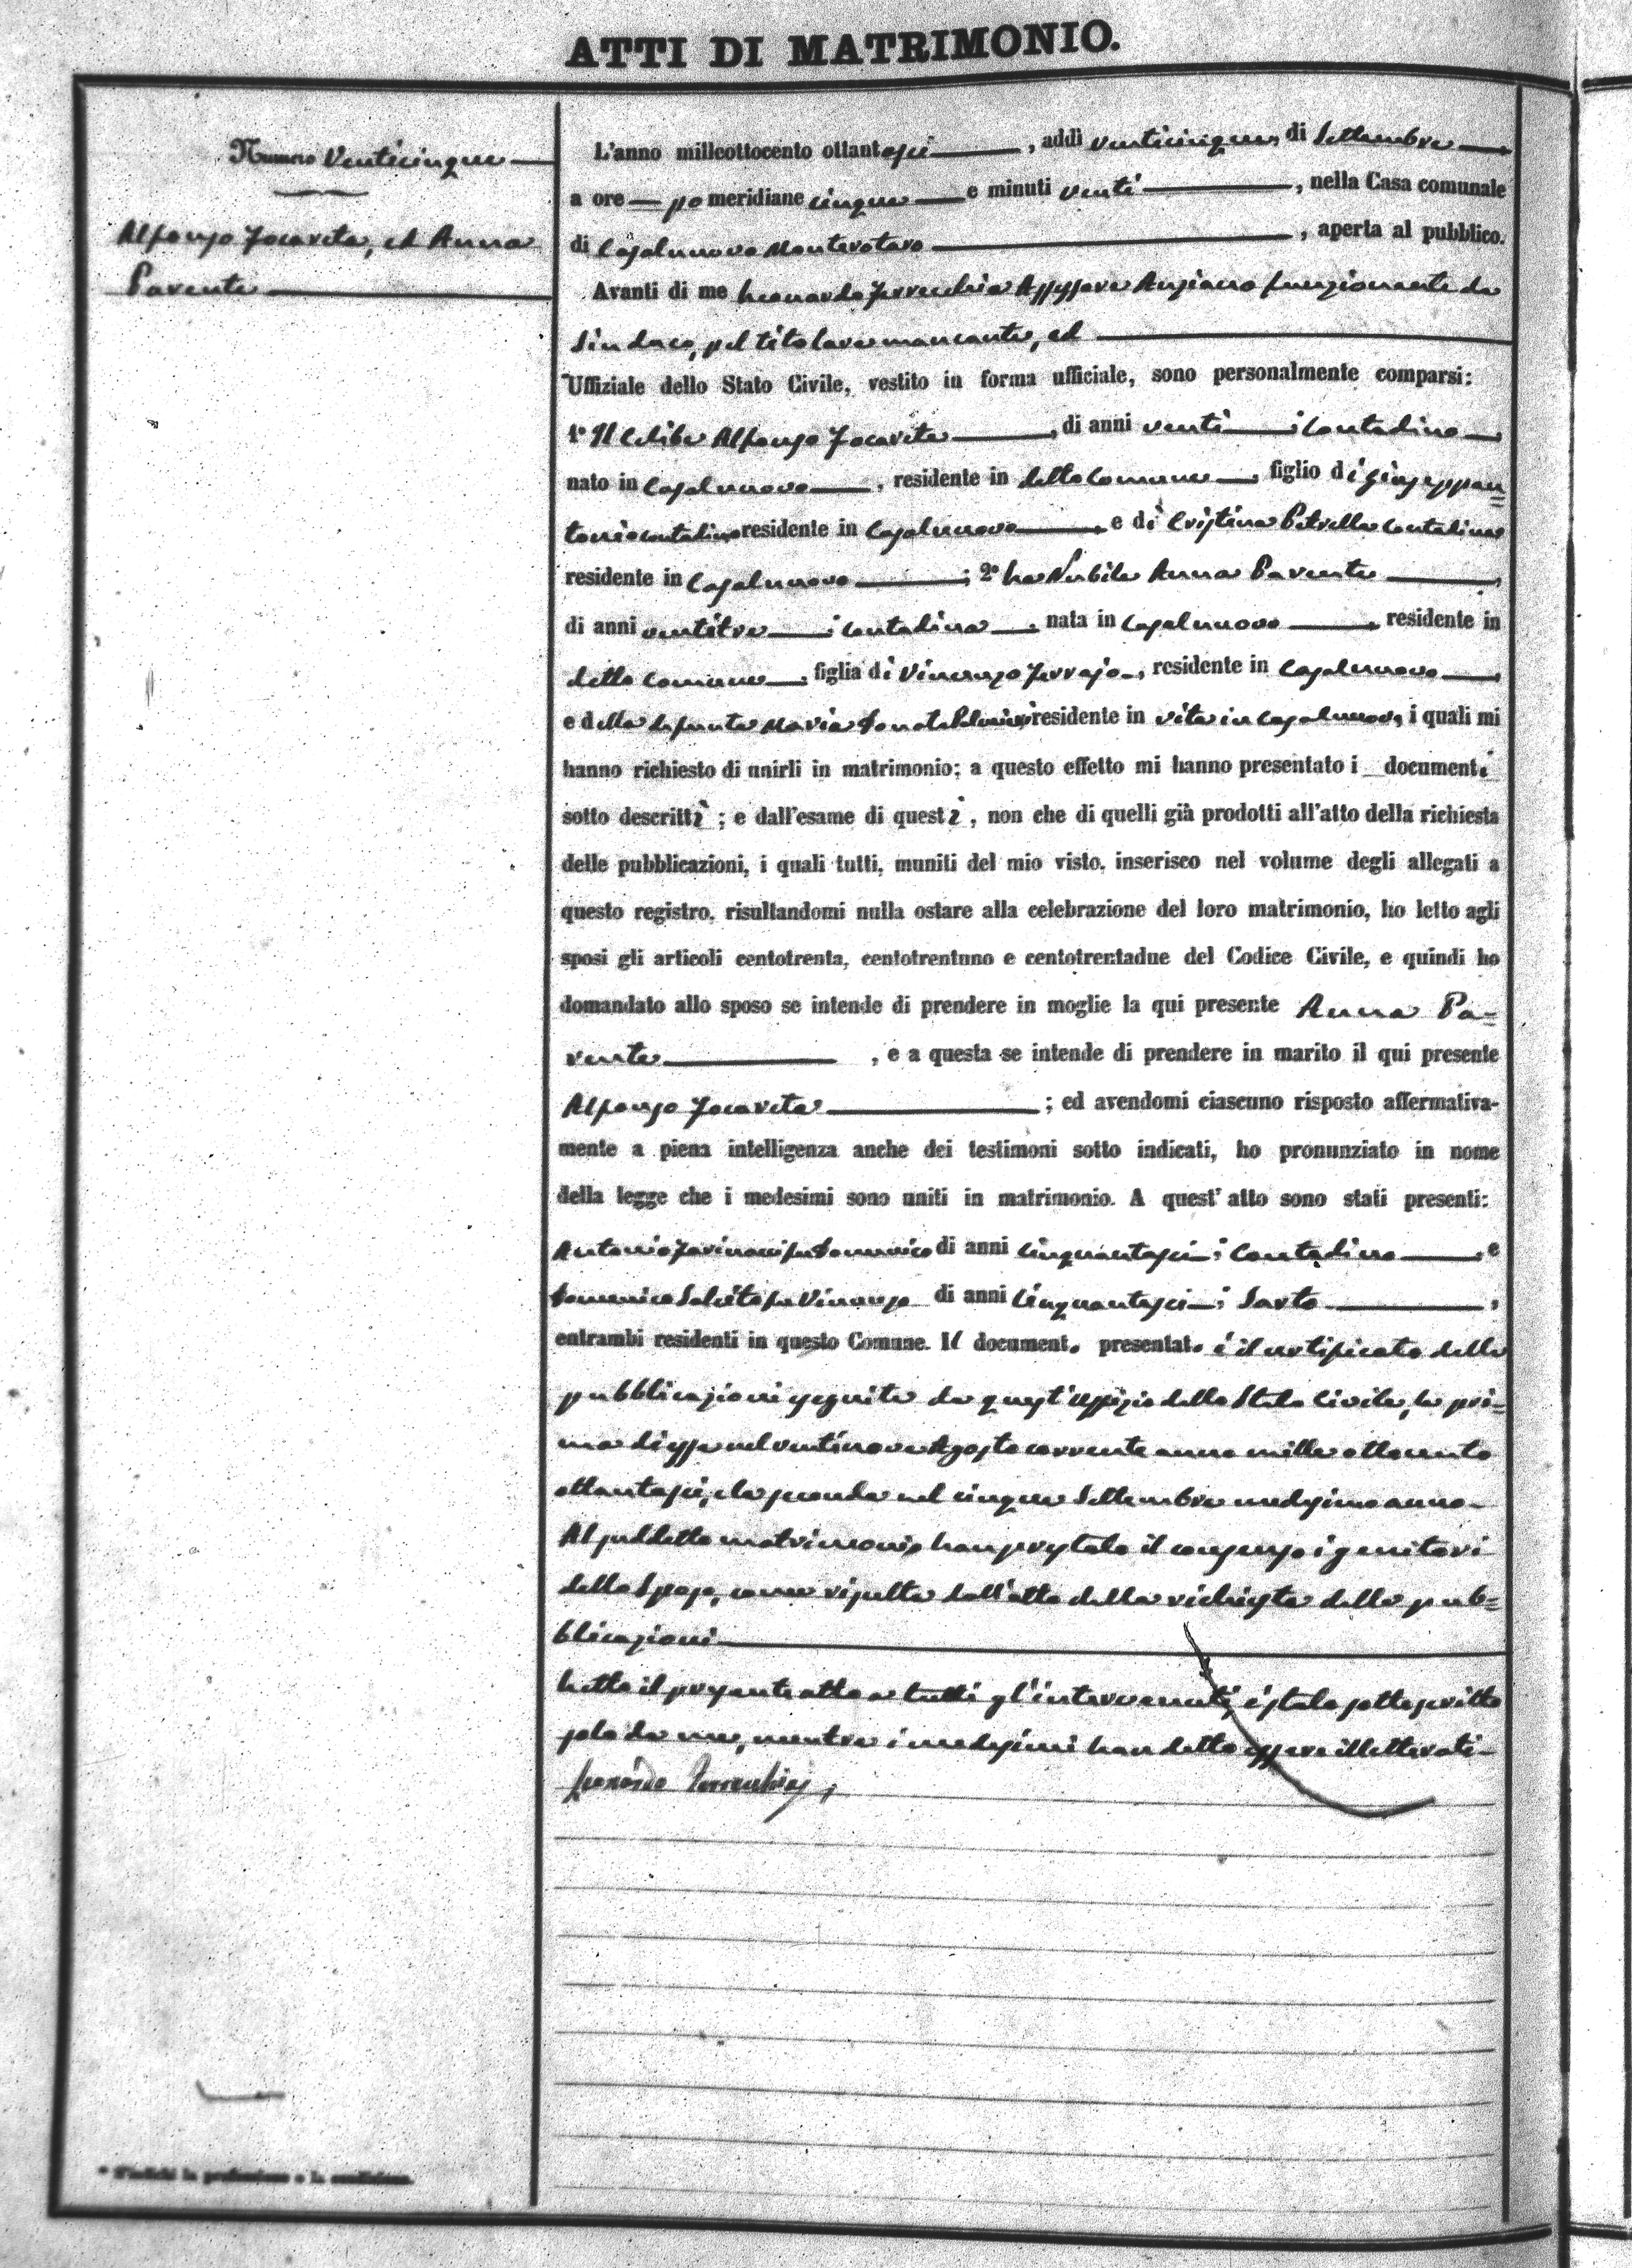 ATTI DI MATRIMONIO.
Numero Venticinque
Alfonso Iocavita, ed Anna
Parente
L'anno milleottocento ottantasei, addì venticinque di Settembre
a ore pomeridiane cinque e minuti venti, nella Casa comunale
di Casalnuovo Monterotaro, aperta al pubblico.
Avanti di me Leonardo Assessore Anziano funzionante da
Sindaco, pel titolare mancante, ed
Uffiziale dello Stato Civile, vestito in forma ufficiale, sono personalmente comparsi:
1° Il Celibe Alfonso Iocavita, di anni venti; Contadino,
nato in Casalnuovo, residente in detto Comune, figlio di Giuseppan=
tonio contadino residente in Casalnuovo e di Cristina Petrella Contadina
residente in Casalnuovo; 2° La Nubile Anna Parente,
di anni ventitre; Contadina, nata in Casalnuovo, residente in
detto Comune, figlia di Vincenzo, residente in Casalnuovo,
e della defunta Maria Donata residente in vita in Casalnuovo, i quali mi
hanno richiesto di unirli in matrimonio; a questo effetto mi hanno presentato i documenti
sotto descritti; e dall'esame di questi, non che di quelli già prodotti all'atto della richiesta
delle pubblicazioni, i quali tutti, muniti del mio visto, inserisco nel volume degli allegati a
questo registro, risultandomi nulla ostare alla celebrazione del loro matrimonio, ho letto agli
sposi gli articoli centotrenta, centotrentuno e centotrentadue del Codice Civile, e quindi ho
domandato allo sposo se intende di prendere in moglie la qui presente Anna Pa=
rente, e a questa se intende di prendere in marito il qui presente
Alfonso Iocavita; ed avendomi ciascuno risposto affermativa-
mente a piena intelligenza anche dei testimoni sotto indicati, ho pronunziato in nome
della legge che i medesimi sono uniti in matrimonio. A quest'atto sono stati presenti:
Antonio fu Domenico di anni cinquantasei; Contadino, e
Domenico Salcito fu Vincenzo di anni cinquantasei; Sarto,
entrambi residenti in questo Comune. Il documento presentato è il certificato delle
pubblicazioni eseguite da quest'Uffizio dello Stato Civile, la pri=
ma di esse nel ventinove Agosto corrente anno mille ottocento
ottantasei, e la seconda nel cinque Settembre medesimo anno-
Al suddetto matrimonio han prestato il consenso i genitori
dello Sposo, come risulta dall'atto della richiesta delle pub=
blicazioni
Letto il presente atto a tutti gl'intervenuti, è stato sottoscritto
solo da me, mentre i medesimi han detto essere illetterati-
Leonardo
* S'indichi la professione o la condizione.